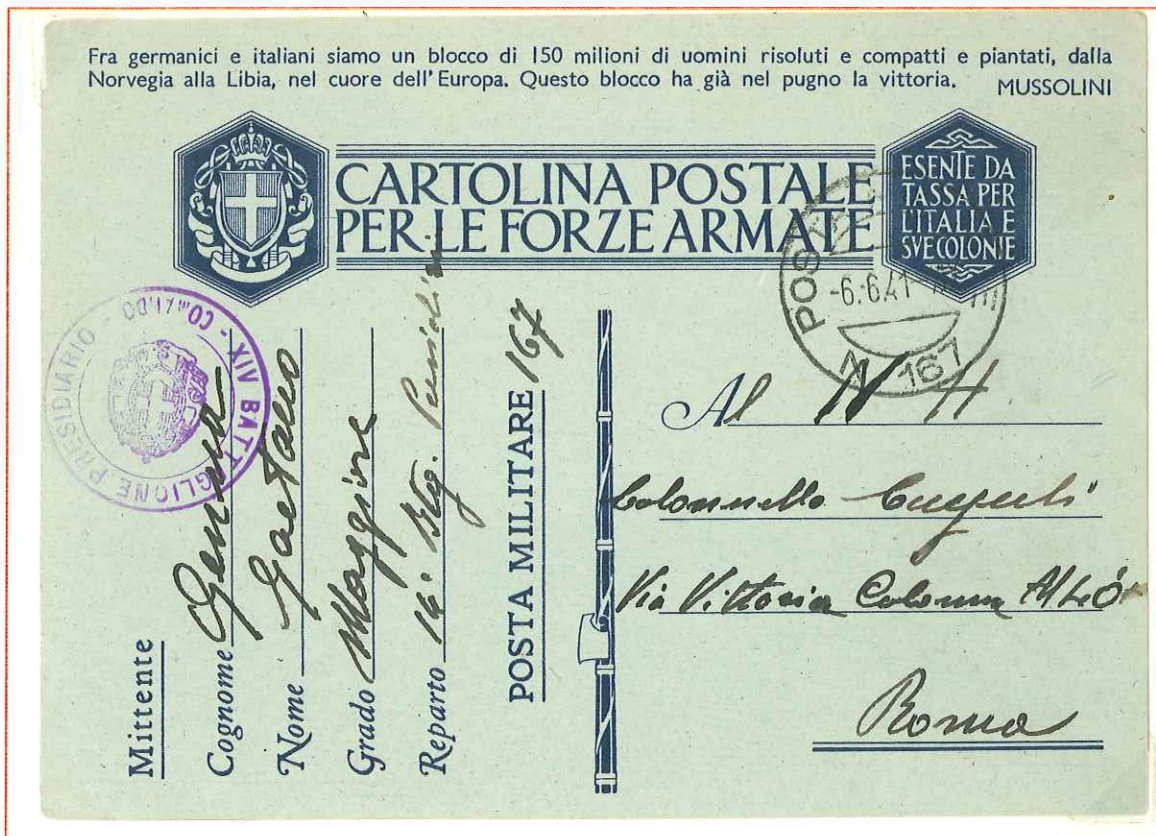 Fra germanici e italiani siamo un blocco di 150 milioni di uomini risoluti e compatti e piantati, dalla
Norvegia alla Libia, nel cuore dell'Europa. Questo blocco ha già nel pugno la vittoria.
MUSSOLINI
CARTOLINA POSTALE
PER LE FORZE ARMATE
ESENTE DA
TASSA PER
L'ITALIA E
SVE COLONIE
-6.6.41
N 167
XIV BATTAGLIONE PRESIDIARIO - COMANDO
Mittente
Cognome
Nome Gaetano
Grado Maggiore
Reparto 14° Btg.
POSTA MILITARE 167
Al N H
Colonnello
Via Vittoria Colonna
Roma